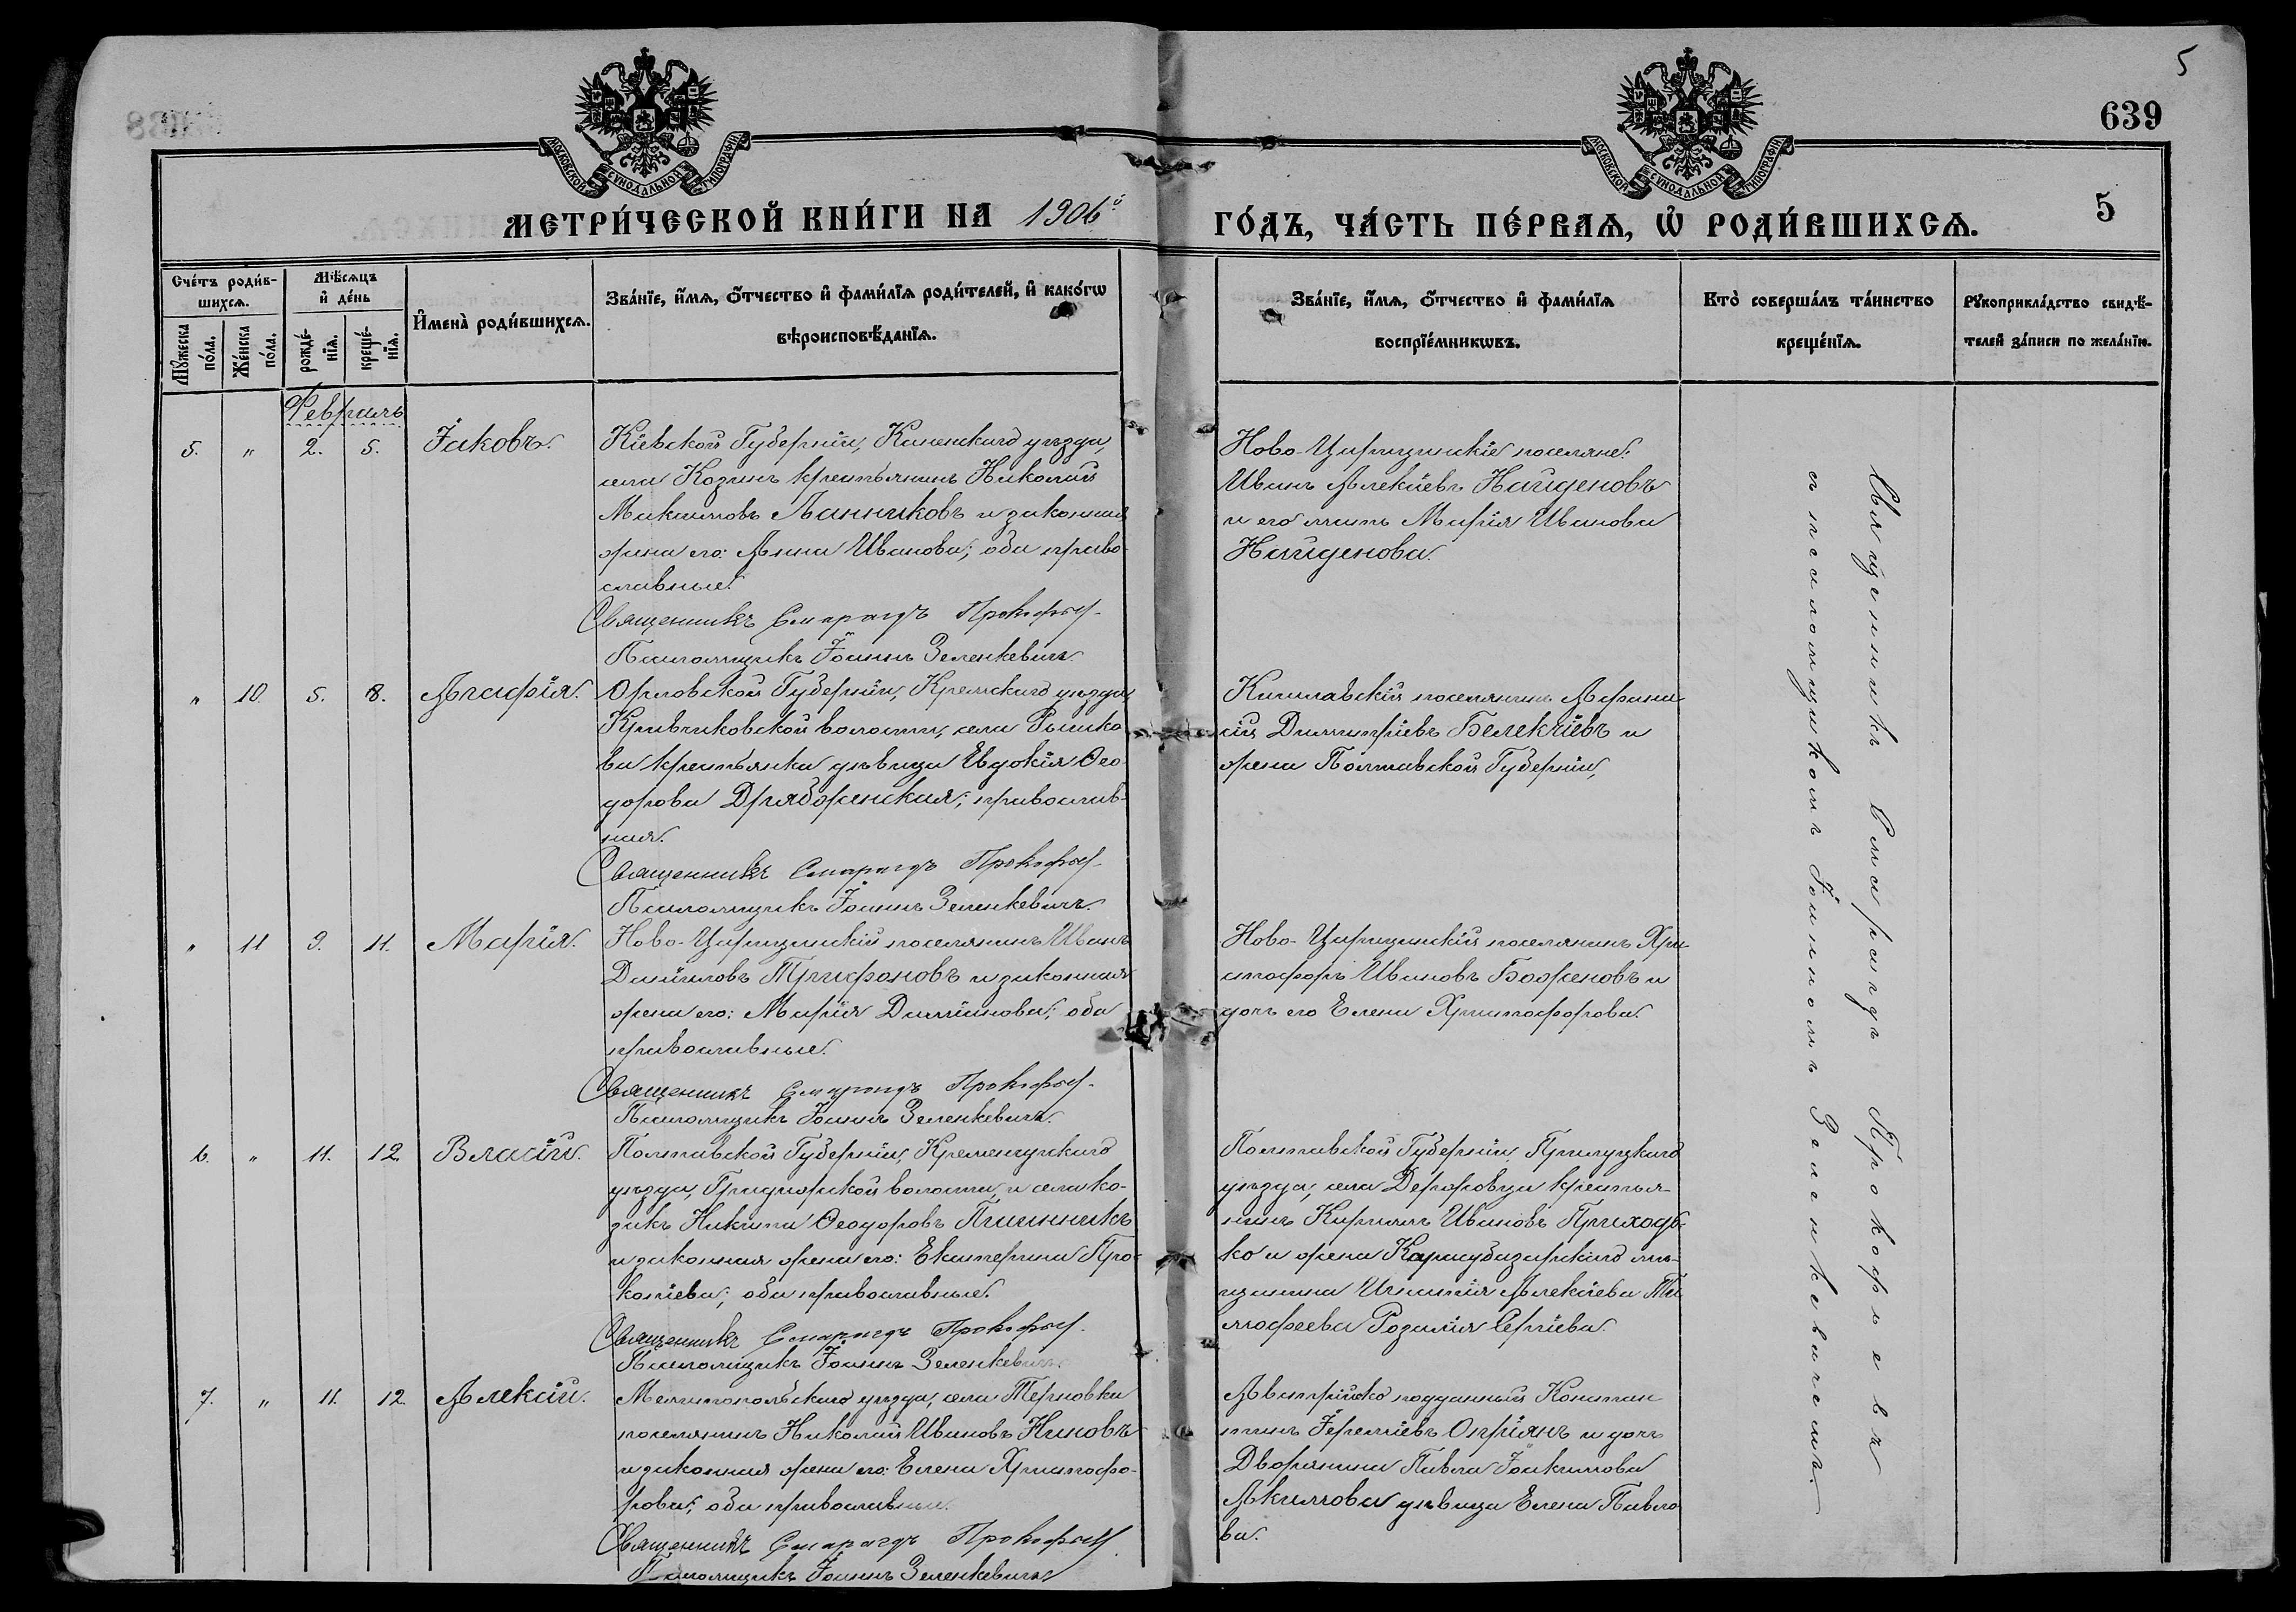 5
639
МОСКОВСКОЙ СѴНОДАЛЬНОЙ ТИПОГРАФІИ
МОСКОВСКОЙ СѴНОДАЛЬНОЙ ТИПОГРАФІИ
МЕТРИ́ЧЕСКОЙ КНИ́ГИ НА 1906й ГО́ДЪ, ЧА́СТЬ ПЕ́РВАѦ, Ѡ҆ РОДИ́ВШИХСѦ. 5
Сче́тъ роди́в-
шихсѧ.
Мꙋ́жеска
по́ла.
Же́нска
по́ла.
Мѣ́сѧцъ
и҆ де́нь
рожде́-
нїѧ.
креще́-
нїѧ.
И҆мена̀ роди́вшихсѧ.
Зва́нїе, и҆́мѧ, ѻ҆́тчество и҆ фами́лїѧ роди́телей, и҆ како́гѡ
вѣроисповѣ́данїѧ.
Зва́нїе, и҆́мѧ, ѻ҆́тчество и҆ фами́лїѧ
воспрїе́мникѡвъ.
Кто̀ соверша́лъ та́инство
креще́нїѧ.
Рꙋкоприкла́дство свидѣ́-
телей за́писи по жела́нїю.
Февраль
5. " 2. 5. Іаковъ.
Кіевской Губерніи, Каневскаго уѣзда,
села Козинъ крестьянинъ Николай
Максимовъ Панниковъ и законная
жена его: Анна Иванова; оба право-
славные.
Священникъ Смарагдъ Прокофьев
Псаломщикъ Іоаннъ Зеленкевичъ.
Ново-Царицинскіе поселяне:
Иванъ Алексіевъ Найденовъ
и его мать Марія Иванова
Найденова.
" 10. 5. 8. Агафія.
Орловской Губерніи, Кромскаго уѣзда,
Кривчиковской волости, села Рышко-
ва крестьянка дѣвица Евдокія Ѳео-
дорова Дрябженская; православ-
ная.
Священникъ Смарагдъ Прокофьев
Псаломщикъ Іоаннъ Зеленкевичъ.
Кишлавскій поселянинъ Афана-
сій Димитріевъ Белекчіевъ и
жена Полтавской Губерніи,
" 11 9. 11. Марія.
Ново-Царицинскій поселянинъ Иванъ
Даніиловъ Трифоновъ и законная
жена его: Марія Даміанова; оба
православные.
Священникъ Смарагдъ Прокофьев
Псаломщикъ Іоаннъ Зеленкевичъ.
Ново-Царицинскій поселянинъ Хри-
стофоръ Ивановъ Боженовъ и
дочь его Елена Христофорова.
6. " 11. 12. Власій.
Полтавской Губерніи, Кременчугскаго
уѣзда, волости, и села ко-
закъ Никита Ѳеодоровъ Пшинникъ
и законная жена его: Екатерина Про-
копіева; оба православные.
Священникъ Смарагдъ Прокофьев
Псаломщикъ Іоаннъ Зеленкевичъ.
Полтавской Губерніи, Прилуцкаго
уѣзда, села крестья-
нинъ Кириллъ Ивановъ Приходь-
ко и жена Карасубазарскаго мѣ-
щанина Игнатія Алексіева Ти-
мофеева Розалія Сергіева.
7. " 11. 12. Алексій.
Мелитопольскаго уѣзда, села Терновки
поселянинъ Николай Ивановъ Ниновъ
и законная жена его: Елена Христофо-
рова; оба православные.
Священникъ Смарагдъ Прокофьев
Псаломщикъ Іоаннъ Зеленкевичъ
Австрійско подданный Констан-
тинъ Іереміевъ Опріянъ и дочь
Дворянина Павла Іоакимова
Акимова дѣвица Елена Павло-
ва.
Священникъ Смарагдъ Прокофьевъ
съ псаломщикомъ Іоанномъ Зеленкевичемъ.